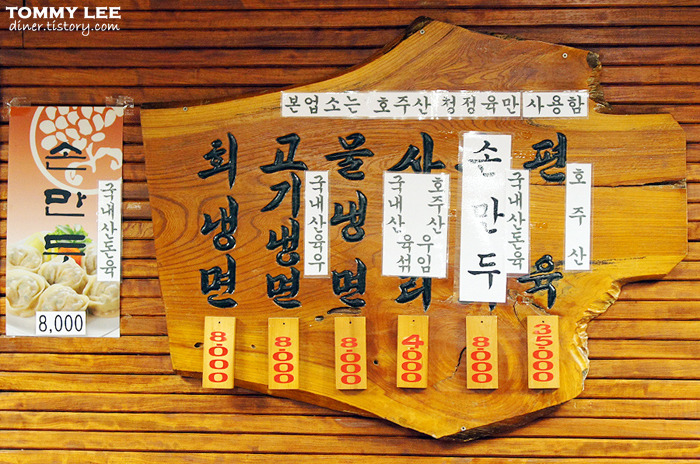 TOMMY LEE
diner.tistory.com
본업소는 호주산 청정육만 사용함
손만두
국내산돈육
8,000
회냉면
8,000
고기냉면
국내산육우
8,000
물냉면
8,000
사리
국내산 호주산
육우
섞임
4,000
손만두
국내산돈육
8,000
편육
호주산
35,000